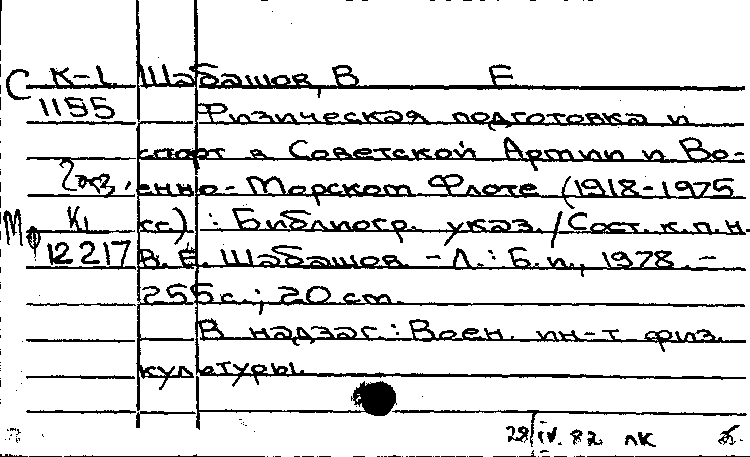 С К-1 Шабашов, В Е
1155 Физическая подготовка и
спорт в Советской Армии и Во-
2экз. енно-Морском Флоте (1918-1975
К1 гг.) : Библиогр. указ. / Сост. к.п.н.
12217 В. Е. Шабашов - Л.: Б.и., 1978. -
255 с.; 20 см.
В надзаг.: Воен. ин-т физ.
культуры.
28/IV.82 лк